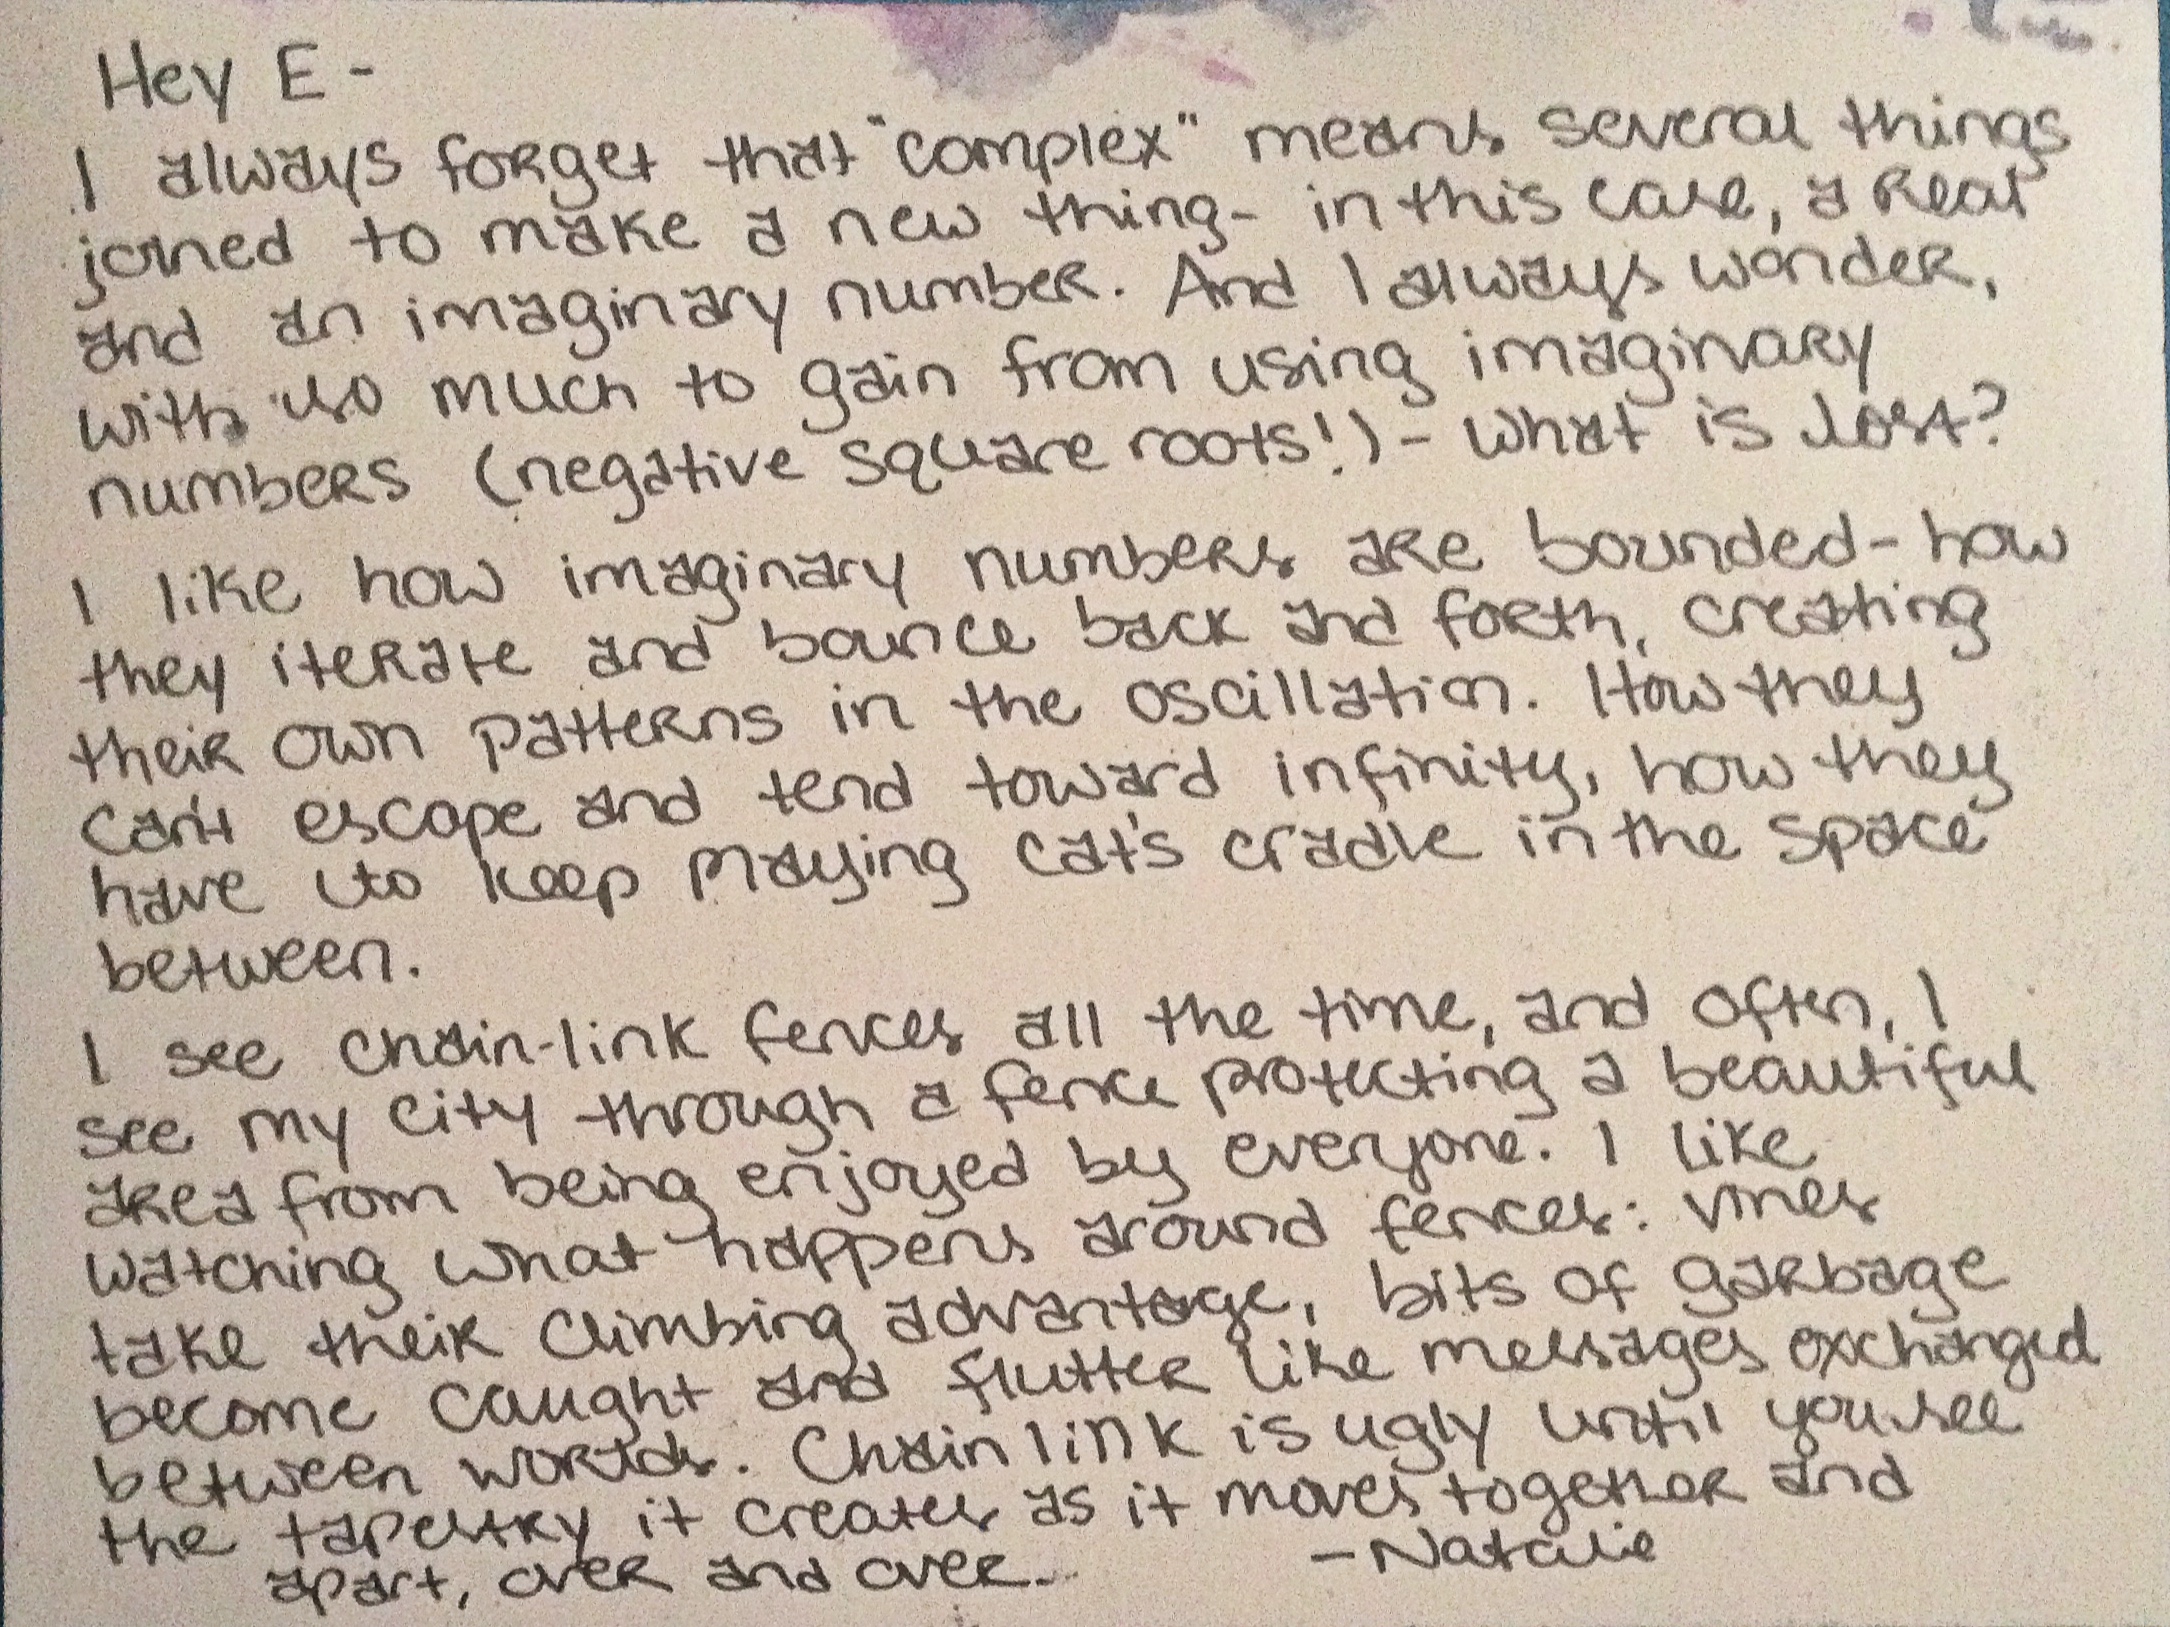 Hey E -
I always forget that "complex" means several things
joined to make a new thing - in this case, a Real
and an imaginary number. And I always wonder,
with so much to gain from using imaginary
numbers (negative square roots!) - what is lost?
I like how imaginary numbers are bounded - how
they iterate and bounce back and forth, creating
their own patterns in the oscillation. How they
can't escape and tend toward infinity, how they
have to keep playing cat's cradle in the space
between.
I see chain-link fences all the time, and often, I
see my city through a fence protecting a beautiful
area from being enjoyed by everyone. I like
watching what happens around fences: vines
take their climbing advantage, bits of garbage
become caught and flutter like messages exchanged
between worlds. Chain link is ugly until you see
the tapestry it creates as it moves together and
apart, over and over.
- Natalie